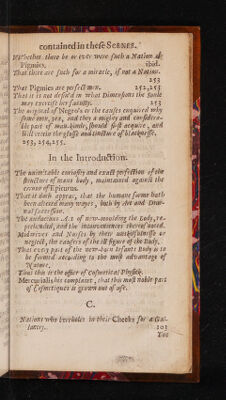 contained in theſe SCENES.
Whether there be or ever were ſuch a Nation of
Pigmies. ibid.
That there are ſuch for a miracle, if not a Nation.
253
That Pigmies are perfect men. 252, 253
That it is not defin'd in what Dimenſions the Soule
may exerciſe her faculty. 253
The originall of Negro's or the cauſes enquired why
ſome men, yea, and they a mighty and conſidera-
ble part of mankinde, ſhould firſt acquire, and
ſtill reteine the gloſſe and tincture of blackneſſe.
253, 254, 255.
In the Introduction.
The inimitable curioſity and exact perfection of the
ſtructure of mans body, maintained againſt the
errour of Epicurus.
That it doth appear, that the humane forme hath
been altered many wayes, both by Art and Diur-
nal ſucceſſion.
The audacious Art of new-moulding the Body, re-
prehended, and the inconveniences thereof noted.
Midwives and Nurſes by their unskilfulneſſe or
neglect, the cauſers of the ill figure of the Body.
That every part of the new-born Infants Body is to
be formed according to the moſt advantage of
Nature.
That this is the office of Coſmetical Phyſick.
Mercurialis his complaint, that this moſt noble part
of Coſmetiques is grown out of uſe.
C.
Nations who
in their Cheeks for a Gal-
lantry. 103
The